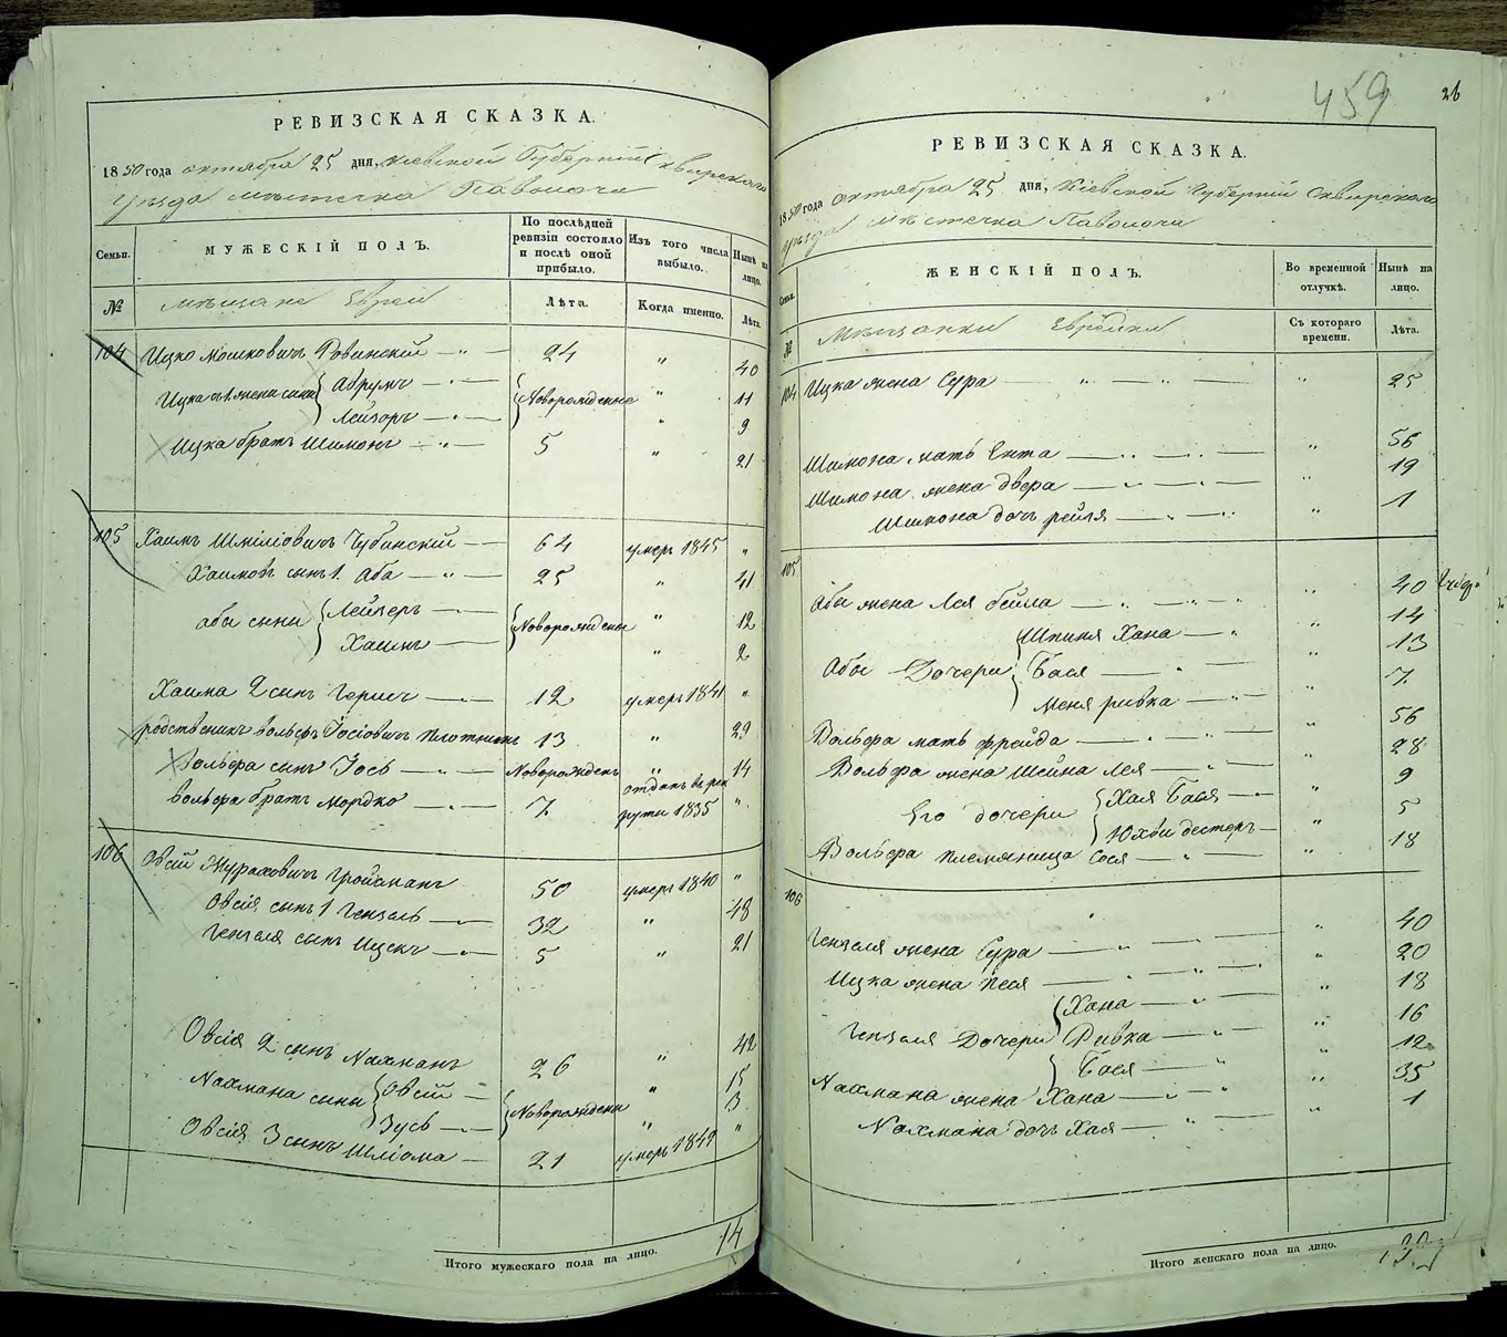 РЕВИЗСКАЯ СКАЗКА.
1850 года октября 25 дня, Кіевской Губерніи Сквирскаго
уѣзда мѣстечка Паволочи
Семьи.
МУЖЕСКІЙ ПОЛЪ.
По послѣдней ревизіи состояло и послѣ оной прибыло.
Изъ того числа выбыло.
Нынѣ на лицо.
№
мѣщане Евреи
Лѣта.
Когда именно.
Лѣта.
104 Ицко Мошковичъ Ровинскій — " — 24 " 40
Ицка отъ 1 жены сыны { Абрумъ — " — { Новорожденые " 11
Лейзоръ — " — " 9
Ицка братъ Шимонъ — " — 5 " 21
105 Хаимъ Шміліовичъ Чубинскій — — 64 умеръ 1845 "
Хаимовъ сынъ 1. Аба — " — 25 " 41
Абы сыны { Лейзеръ — " — { Новорождены " 12
Хаимъ — " 2
Хаима 2 сынъ Гершъ — " — 12 умеръ 1841 "
родственикъ Вольфъ Іосіовичъ Плотникъ 13 " 29
Вольфа сынъ Іось — " — Новорожденъ " 14
Вольфа братъ Мордко — " — 7 отданъ въ рек
руты 1835 "
106 Овсій Мураховичъ Гройсманъ 50 умеръ 1840 "
Овсія сынъ 1 Гензель — " — 32 " 48
Гензеля сынъ Ицекъ — " — 5 " 21
Овсія 2 сынъ Нахманъ 26 " 42
Нахмана сыны { Овсій — " { Новорождены " 15
Зусь — " — " 3
Овсія 3 сынъ Шліома — 21 умеръ 1849 "
Итого мужескаго пола на лицо. 14
459
26
РЕВИЗСКАЯ СКАЗКА.
1850 года октября 25 дня, Кіевской Губерніи Сквирскаго
уѣзда мѣстечка Паволочи
Семьи.
ЖЕНСКІЙ ПОЛЪ.
Во временной отлучкѣ.
Нынѣ на лицо.
№
Мѣщанки Еврейки
Съ котораго времени.
Лѣта.
104 Ицка жена Сура " — " — " 25
Шимона мать Ента — " — " — " 56
Шимона жена Двера — " — " — " 19
Шимона дочь Рейзя — " — " 1
105
Абы жена Лея Бейла — " — " — " 40
Абы Дочери { Шпиня Хана — " " 14
Бася — " — " 13
Меня Ривка — " — " 7
Вольфа мать Фрейда — " — " — " 56
Вольфа жена Шейна Лея — " — " 28
Его дочери { Хая Бася — " — " 9
Юхви дестеръ — " 5
Вольфа племянница Сося — " — " 18
106
Гензеля жена Сура — " — " — " 40
Ицка жена Песя — " — " — " 20
Гензеля Дочери { Хана — " — " 18
Ривка — " — " 16
Бася — " " 12
Нахмана жена Хана — " — " " 35
Нахмана дочь Хая — " — " 1
Итого женскаго пола на лицо.